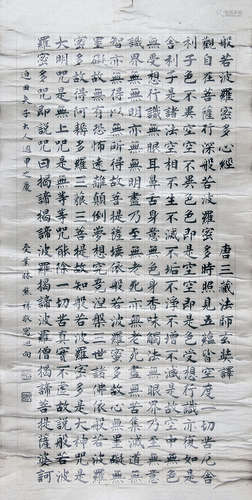 般若波羅密多心經 唐三藏法師玄奘譯
觀自在菩薩行深般若波羅密多時照見五蘊皆空度一切苦厄舍
利子色不異空空不異色色即是空空即是色受想行識亦復如是
舍利子是諸法空相不生不滅不垢不淨不增不減是故空中無色
無受想行識無眼耳鼻舌身意無色聲香味觸法無眼界乃至無意
識界無無明亦無無明盡乃至無老死亦無老死盡無苦集滅道無
智亦無得以無所得故菩提薩埵依般若波羅密多故心無罣礙無
罣礙故無有恐怖遠離顛倒夢想究竟涅槃三世諸佛依般若波羅
密多故得阿耨多羅三藐三菩提故知般若波羅密多是大神咒是
大明咒是無上咒是無等等咒能除一切苦真實不虛故說般若波
羅密多咒即說咒曰揭諦揭諦波羅揭諦波羅僧揭諦菩提薩婆訶